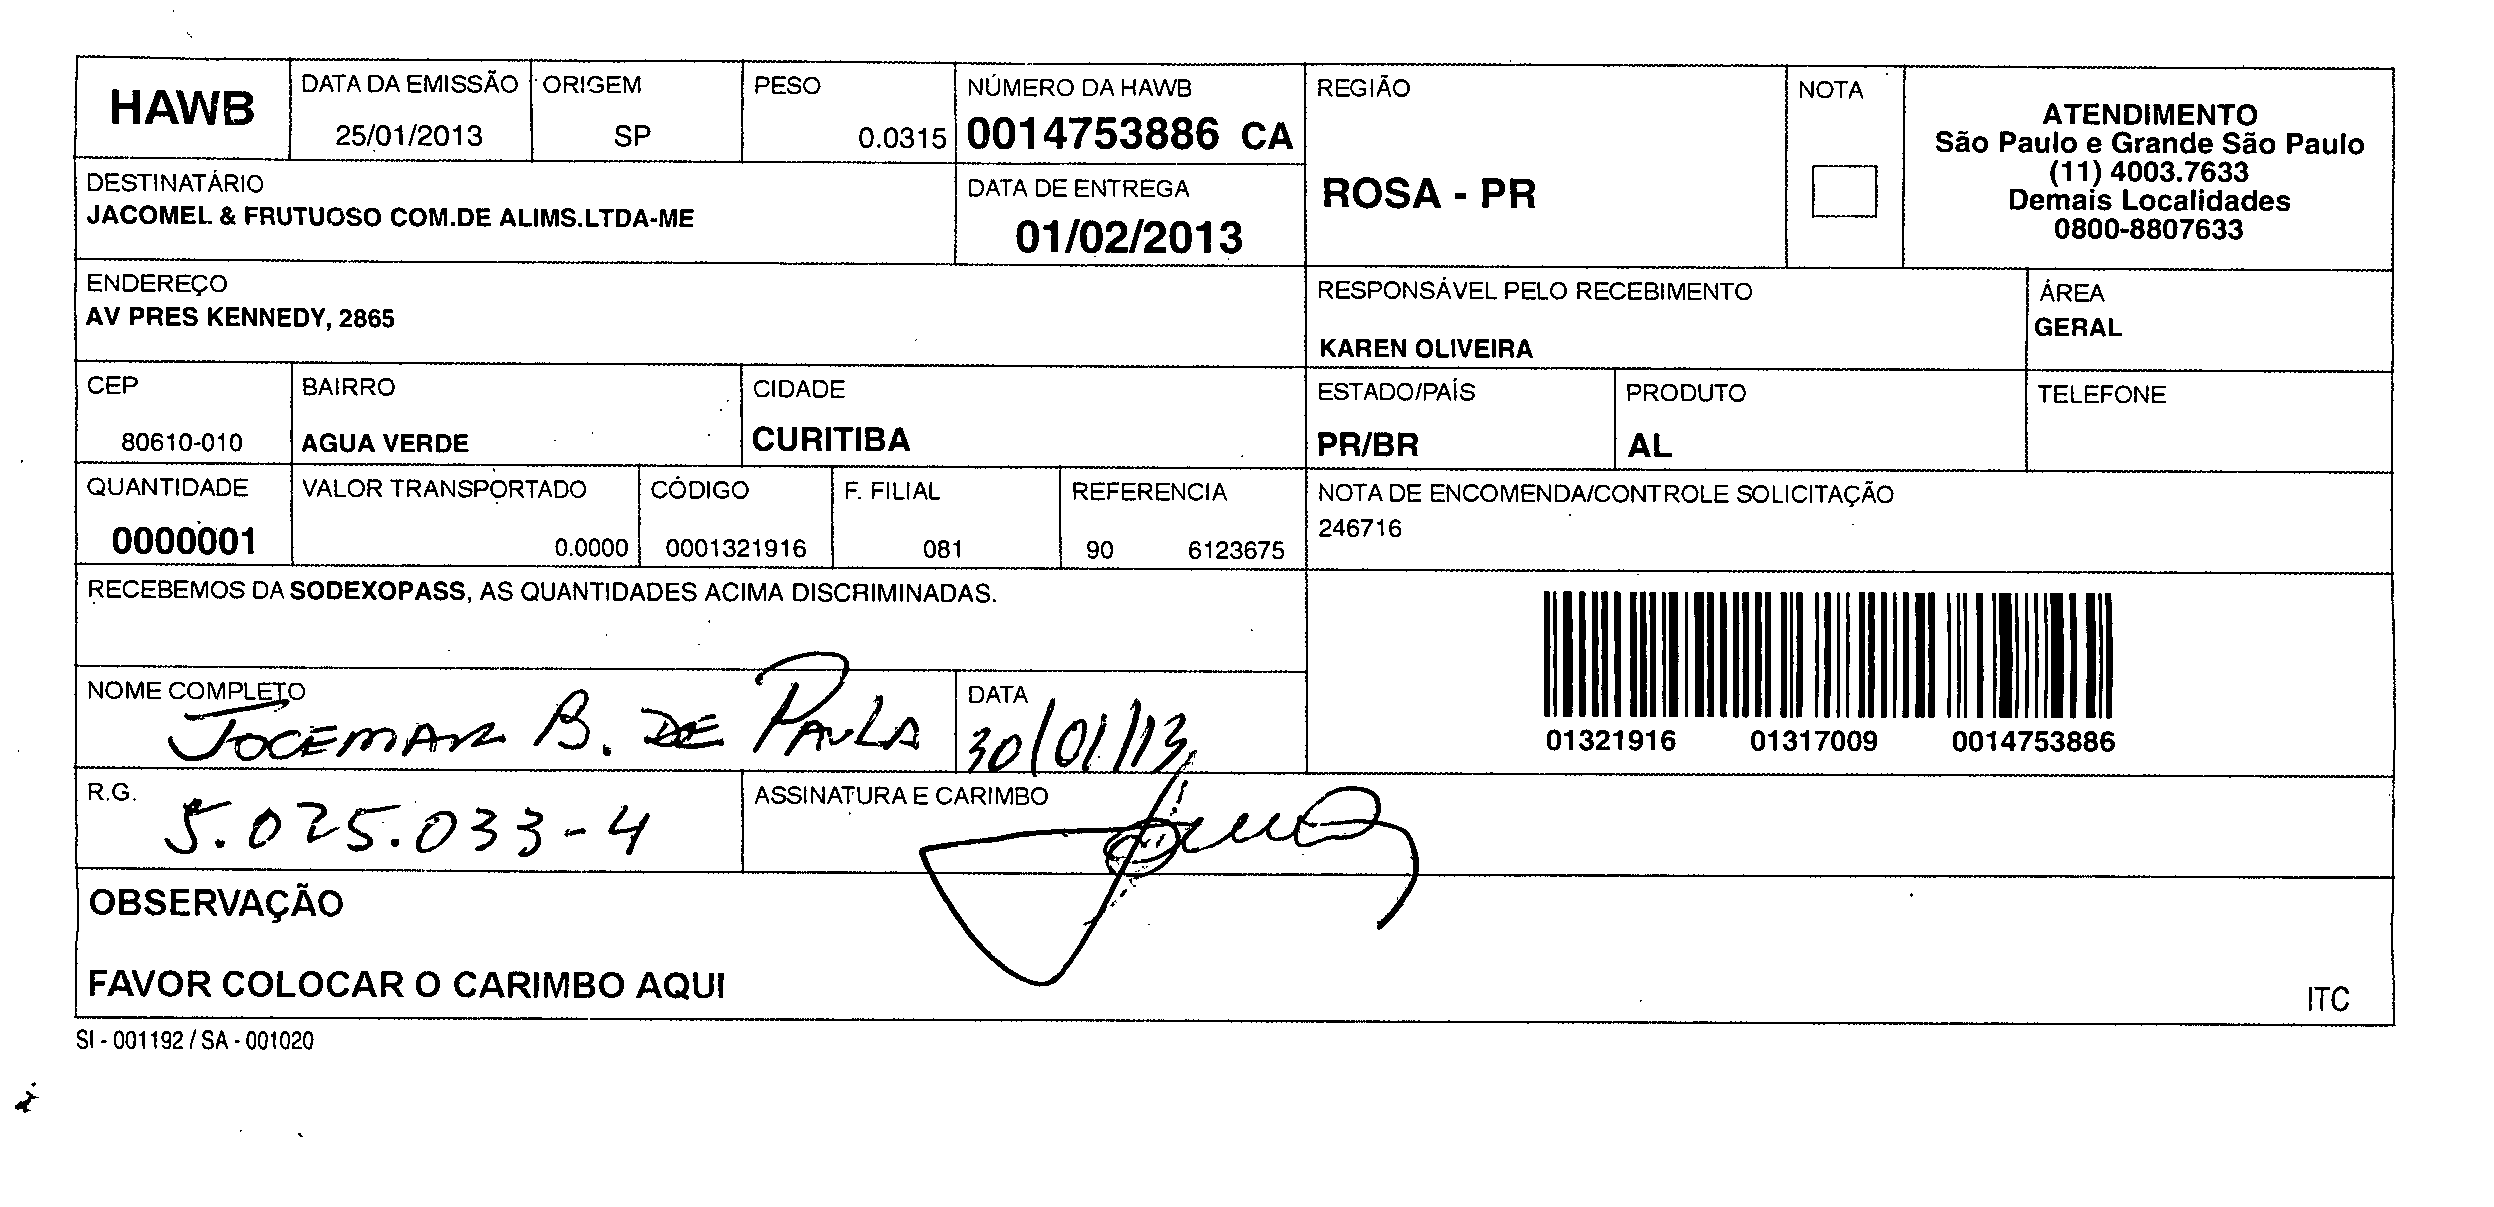 HAWB
DATA DA EMISSÃO
25/01/2013
ORIGEM
SP
PESO
0.0315
NÚMERO DA HAWB
0014753886 CA
REGIÃO
ROSA - PR
NOTA
ATENDIMENTO
São Paulo e Grande São Paulo
(11) 4003.7633
Demais Localidades
0800-8807633
DESTINATÁRIO
JACOMEL & FRUTUOSO COM.DE ALIMS.LTDA-ME
DATA DE ENTREGA
01/02/2013
ENDEREÇO
AV PRES KENNEDY, 2865
RESPONSÁVEL PELO RECEBIMENTO
KAREN OLIVEIRA
ÁREA
GERAL
CEP
80610-010
BAIRRO
AGUA VERDE
CIDADE
CURITIBA
ESTADO/PAÍS
PR/BR
PRODUTO
AL
TELEFONE
QUANTIDADE
0000001
VALOR TRANSPORTADO
0.0000
CÓDIGO
0001321916
F. FILIAL
081
REFERENCIA
90 6123675
NOTA DE ENCOMENDA/CONTROLE SOLICITAÇÃO
246716
RECEBEMOS DA SODEXOPASS, AS QUANTIDADES ACIMA DISCRIMINADAS.
01321916 01317009 0014753886
NOME COMPLETO
JOCEMAR B. DE PAULA
DATA
30/01/13
R.G.
5.025.033-4
ASSINATURA E CARIMBO
OBSERVAÇÃO
FAVOR COLOCAR O CARIMBO AQUI
ITC
SI - 001192 / SA - 001020